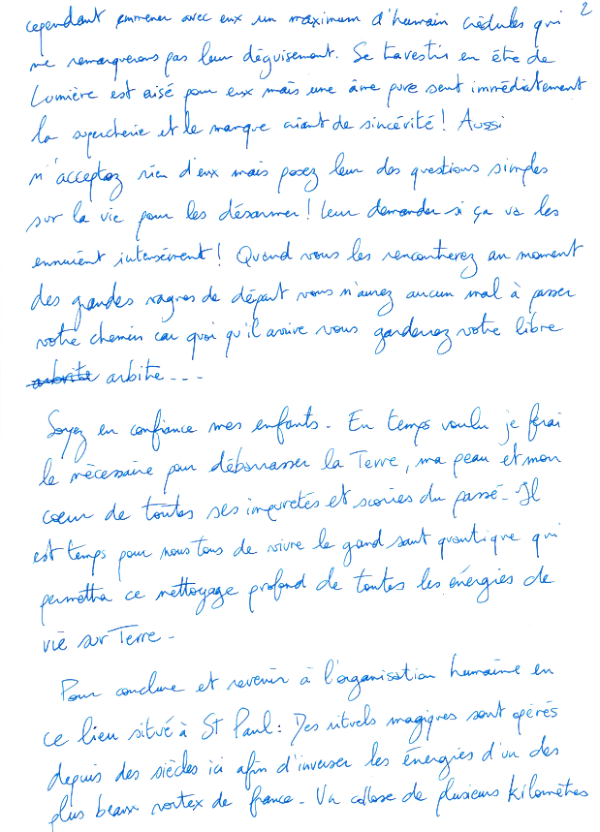 2
cependant emmener avec eux un maximum d'humain crédules qui
ne remarquerons pas leur déguisement. Se travestir en être de
Lumière est aisé pour eux mais une âme pure sent immédiatement
la supercherie et le manque criant de sincérité! Aussi
n'acceptez rien d'eux mais posez leur des questions simples
sur la vie pour les désarmer! leur demander si ça va les
ennuient intensément! Quand vous les rencontrerez au moment
des grandes vagues de départ vous n'aurez aucun mal à passer
votre chemin car quoi qu'il arrive vous garderez votre libre
arbitre ---
Soyez en confiance mes enfants. En temps voulu je ferai
le nécessaire pour débarrasser la Terre, ma peau et mon
coeur de toutes ses impuretés et scories du passé. Il
est temps pour nous tous de vivre le grand saut quantique qui
permettra ce nettoyage profond de toutes les énergies de
vie sur Terre.
Pour conclure et revenir à l'organisation humaine en
ce lieu situé à St Paul: Des rituels magiques sont opérés
depuis des siècles ici afin d'inverser les énergies d'un des
plus beaux vortex de france. Un colosse de plusieurs kilomètres